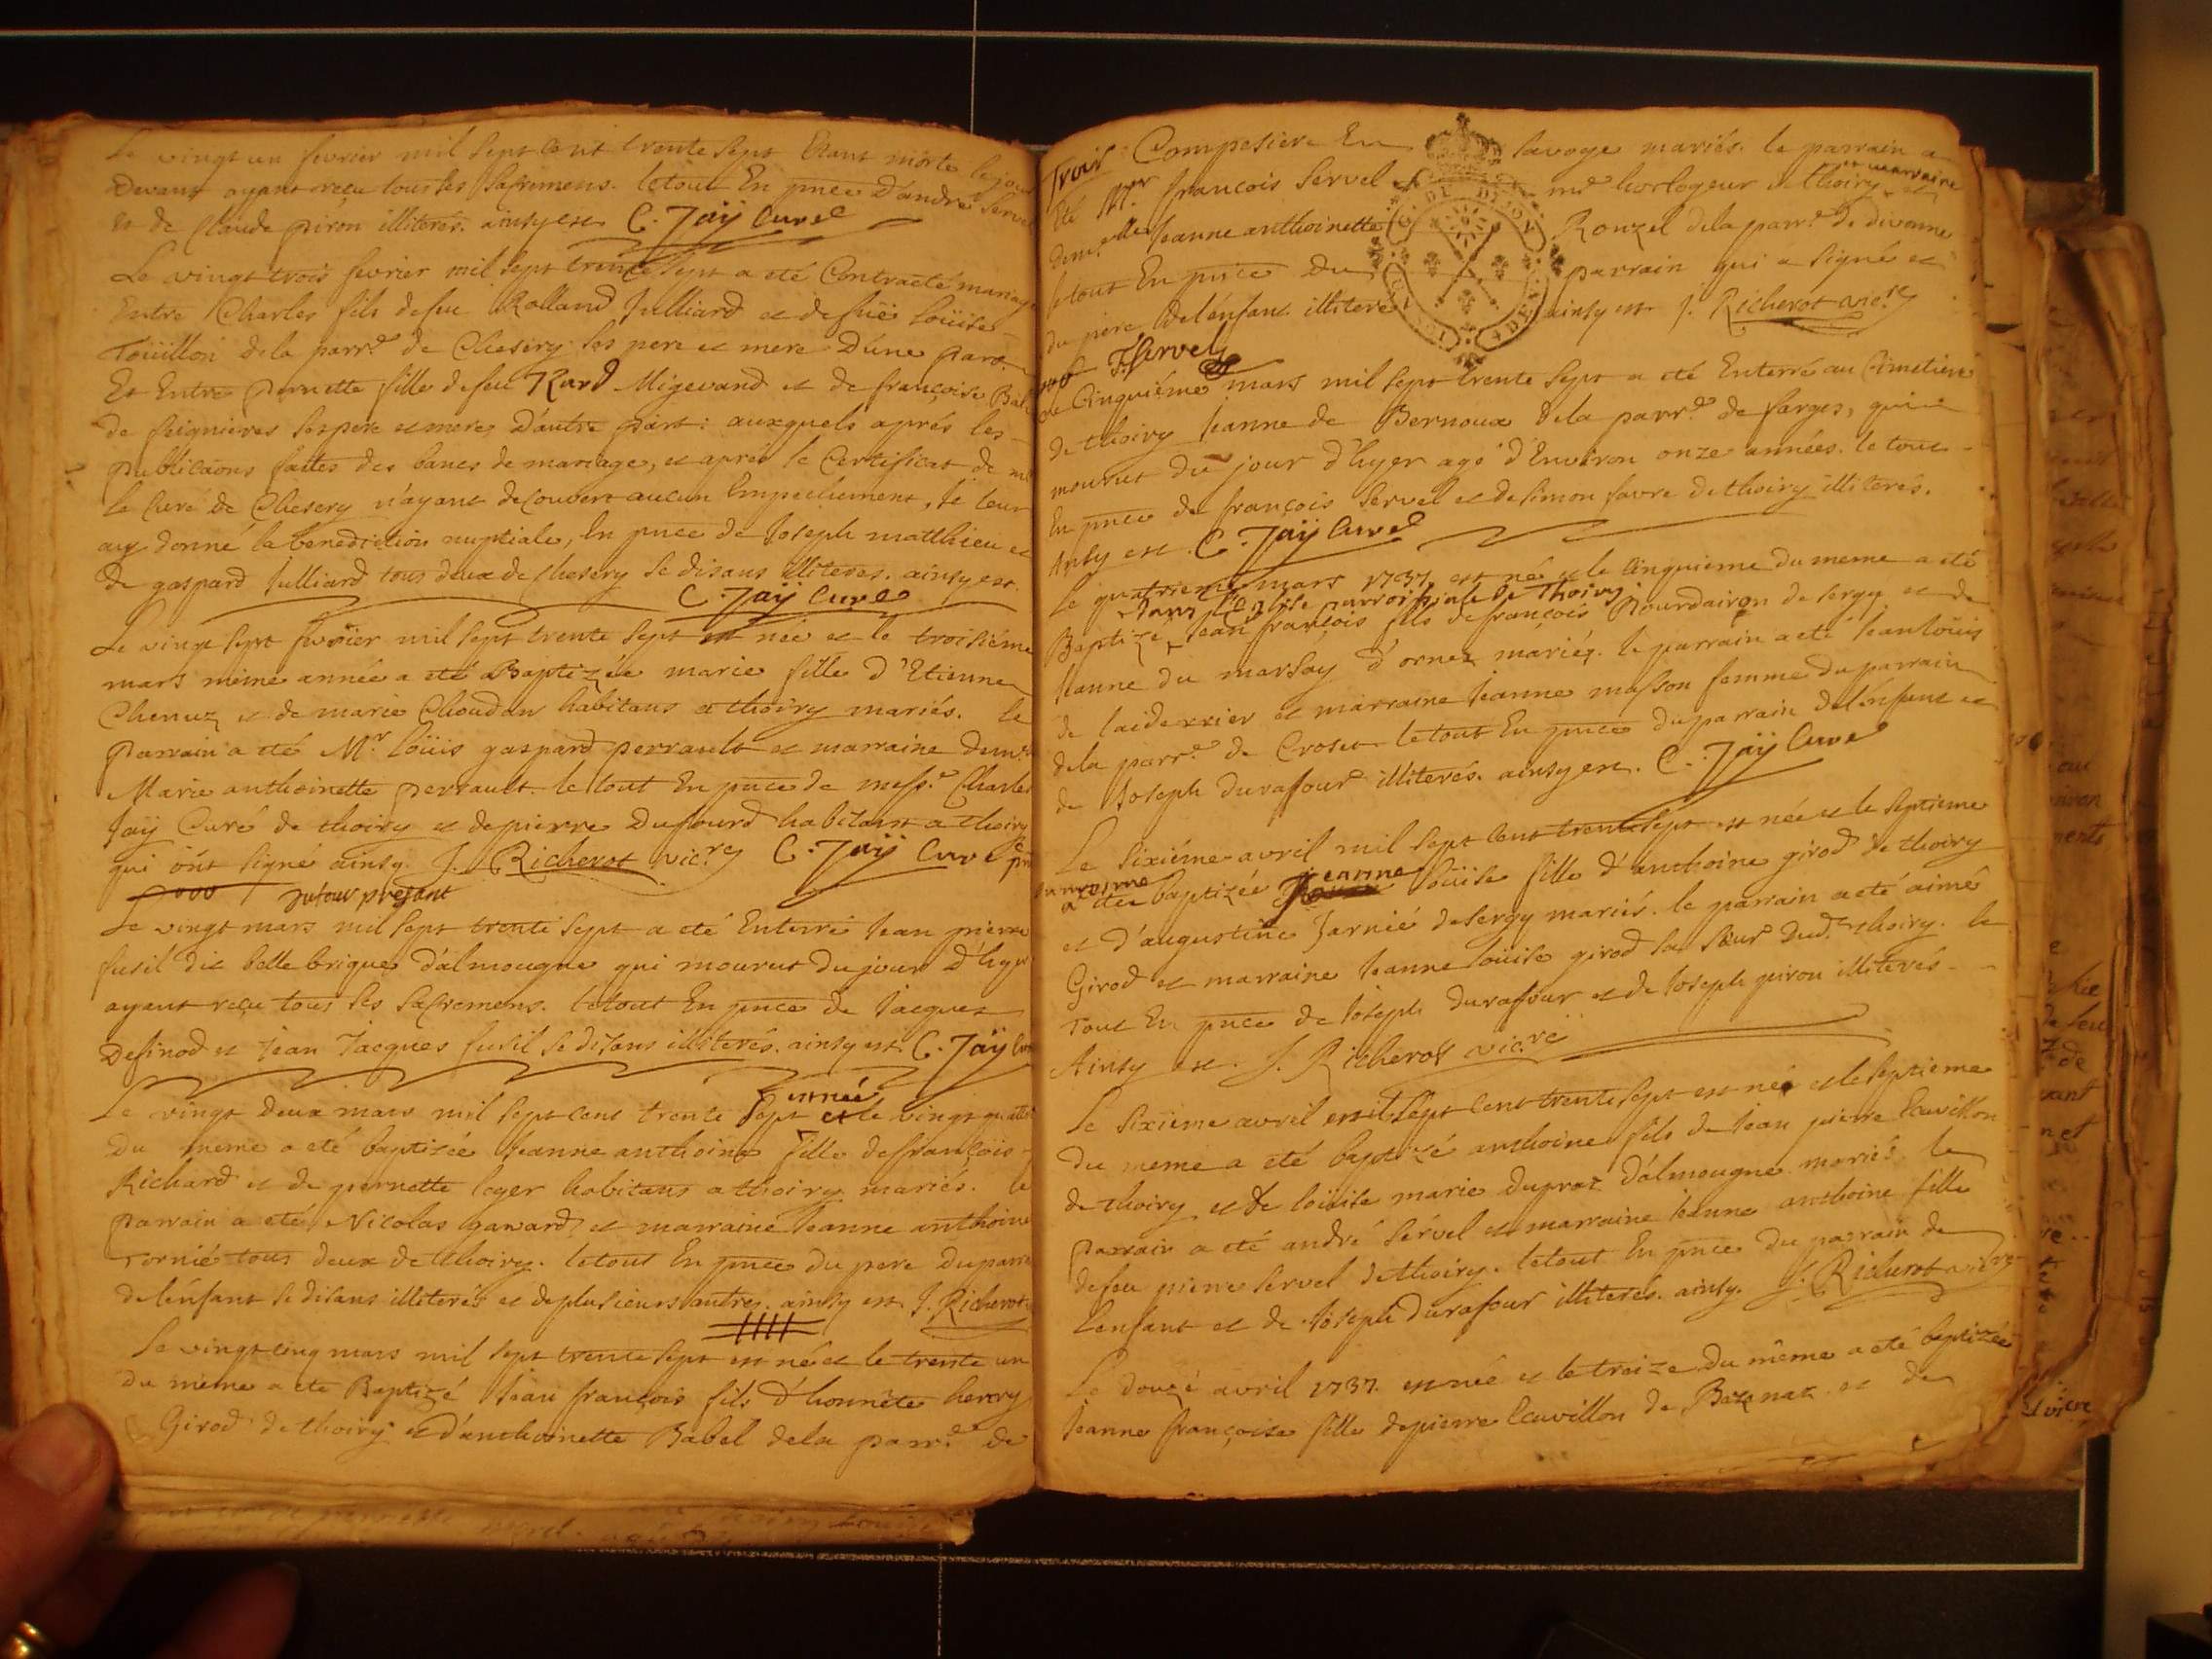 Le vingt un fevrier mil sept cent trente sept Etant morte le jour
Devant ayant reçu tous les Sacremens. le tout En pnce D'andre Servel
et de Claude piron illiterés. ainsy est C. Jaÿ Curé
Le vingt trois fevrier mil sept trente sept a eté Contracté mariage
Entre Charles fils de feu Rolland Julliard et de fuë Loüise
Toüillon de la parr.e de Chesery ses pere et mere D'une part
Et Entre pernette fille de feu Migevand et de françoise
de feignieres ses pere et mere D'autre part: auxquels aprés les
publicaons faites des bancs de mariage, et aprés le Certificat de mr
le Curé de Chesery n'ayant decouvert aucun Empechement, je leur
ay donné la benediction nuptiale, En pnce de Joseph matthieu et
de gaspard Julliard tous deux de Chesery se disans illiteres. ainsy est
C. Jaÿ Curé
Le vingt sept fevrier mil sept trente sept est née et le troisiéme
mars même année a eté Baptizée marie fille d'Etienne
Chenuz et de marie Choudan habitans a thoiry mariés. le
parrain a eté Mr. Loüis gaspard perrault et marraine demlle
Marie anthoinette perrault. le tout En pnce de mess.e Charles
Jaÿ Curé de thoiry et de pierre Dufourd habitant a thoiry
qui ont signé ainsy. J. Richerot vic.re C. Jaÿ Curé
Dufour presant
Le vingt mars mil sept trente sept a eté Enterré Jean pierre
fusil dit belle brigue d'almougne qui mourut du jour d'hyer
ayant reçu tous ses Sacremens. le tout En pnce de Jacques
Definod et Jean Jacques fusil se disans illiterés. ainsy est C. Jaÿ Curé
est née
Le vingt deux mars mil sept cent trente sept et le vingt quatre
Du meme a eté baptizée Jeanne anthoine fille de françois
Richard et de pernette Loyer habitans a thoiry mariés. le
parrain a eté Nicolas gavard et marraine Jeanne anthoine
Tornié tous deux de thoiry. le tout En pnce du pere du parrain
de l'enfant se disans illiterés et de plusieurs autres. ainsy est J. Richerot
Le vingt cinq mars mil sept trente sept est né et le trente un
du meme a eté Baptizé Jean françois fils d'honnête henry
Girod de thoiry et d'anthoinette Babel de la parr.e de
Trois Compesiere En Savoye mariés. le parrain a
Eté Mr. françois Servel md horlogeur de thoiry et marraine
dem.elle Jeanne anthoinette Rouzel de la parr.e de divonne
le tout En pnce Du parrain qui a signé et
du pere de l'enfant illiteré ainsy est J. Richerot vic.re
FServel
Le Cinquiéme mars mil sept trente sept a eté Enterré au Cimetiere
de thoiry Jeanne de Bernoux de la parr.e de farges, qui
mourut du jour d'hyer agé d'Environ onze années. le tout
En pnce de françois Servel et de Simon favre de thoiry illiterés.
Ainsy est. C. Jaÿ Curé
Le quatrieme mars 1737. est né et le cinquieme du meme a eté
dans l'Eglise parroissiale de Thoiry
Baptizé Jean françois fils de françois Bourdairon de sergy et de
Jeanne du marsay d'ornex mariés. le parrain a eté Jean loüis
de laiderrier et marraine Jeanne masson femme du parrain
de la parr.e de Croset le tout En pnce du parrain de l'enfant et
de Joseph Durafour illiterés. ainsy est. C. Jaÿ Curé
Le Sixiéme avril mil sept cent trente sept est née et le septieme
du meme
a eté baptizée Jeanne Loüise fille d'anthoine girod de thoiry
et d'augustine Jarnié de sergy mariés. le parrain a eté aimé
Girod et marraine Jeanne Loüise girod sa Sœur Dud. thoiry. le
Tout En pnce de Joseph Durafour et de Joseph piron illiterés
Ainsy est. J. Richerot vic.re
Le Sixieme avril mil sept cent trente sept est né et le septieme
du meme a eté baptizé anthoine fils de Jean pierre Ecuvillon
de thoiry et de loüise marie duprat D'almougne mariés le
parrain a eté andré Servel et marraine Jeanne anthoine fille
de feu pierre Servel de thoiry. le tout En pnce du parrain de
l'enfant et de Joseph Durafour illiterés. ainsy. J. Richerot vic.re
Le douze avril 1737. est née et le treize du même a eté baptizée
Jeanne françoise fille de pierre Ecuvillon de Badenaz et de